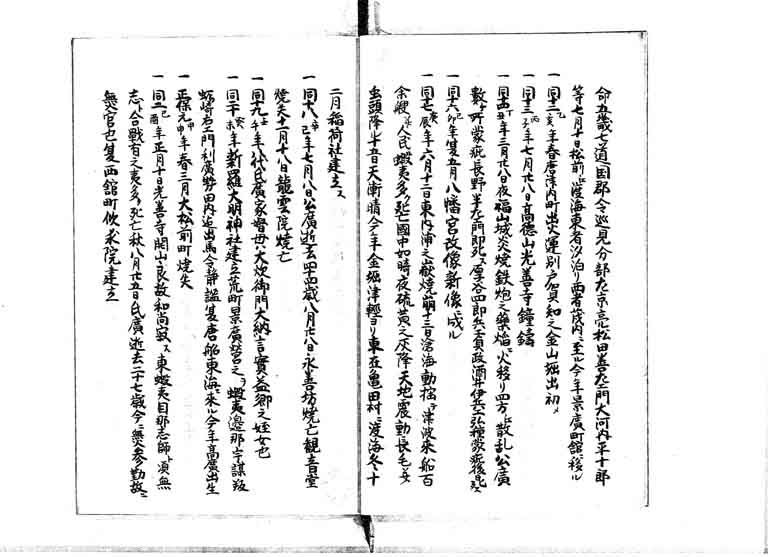 命五畿七道国郡令巡見分部左京亮松田善左エ門大河内平十郎
等七月十日松前ニ渡海東者汐泊り西者茂内ニ至ル今年景廣町館ニ移ル
一 同十二乙亥年春唐津内町出火運別戸賀知之金山堀出初メ
一 同十三丙子年七月廿八日高徳山光善寺鐘鑄
一 同十四丁丑年三月廿八日夜福山城炎焼鉄炮之藥焔ニ火移り四方ニ散乱公廣
数ケ所蒙疵長野半左エ門即死ス厚谷四郎兵エ貞政酒井伊兵エ弘種蒙疵後死ス
一 同十六己卯年夏五月八幡宮改像新像ニ成ル
一 同十七庚辰年六月十三日東内浦之嶽焼崩十三日滄海動揺ヲ津波来船百
余艘ト人民蝦夷多ク死亡國中如時夜硫黄之灰降天地震動長毛ト
虫頭降ル十五日天漸晴今年金堀津軽ヨリ東在亀田村ニ渡海冬十
二月稲荷社建立ス
一 同十八辛巳年七月八日公廣逝去四十四歳八月廿八日永善坊焼亡観音堂
焼失十一月十八日龍雲院焼亡
一 同十九壬午年八代氏廣家督母ハ大炊御門大納言實益卿之姪女也
一 同二十癸未年新羅大明神社建立荒町景廣営之ヲ蝦夷邉那宇謀叛
蛎崎右エ門利廣勢田内迄出馬令静謐夏唐船東海ニ来ル今年高廣出生
一 正保元甲申年春三月大松前町焼失
一 同二乙酉年正月十日光善寺開山良故和尚寂ス東蝦夷目那志師ト須無
志ト合戦有之夷多ク死亡秋八月廿五日氏廣逝去二十七歳今ニ無参勤故ニ
無官也夏西舘町欣求院建立